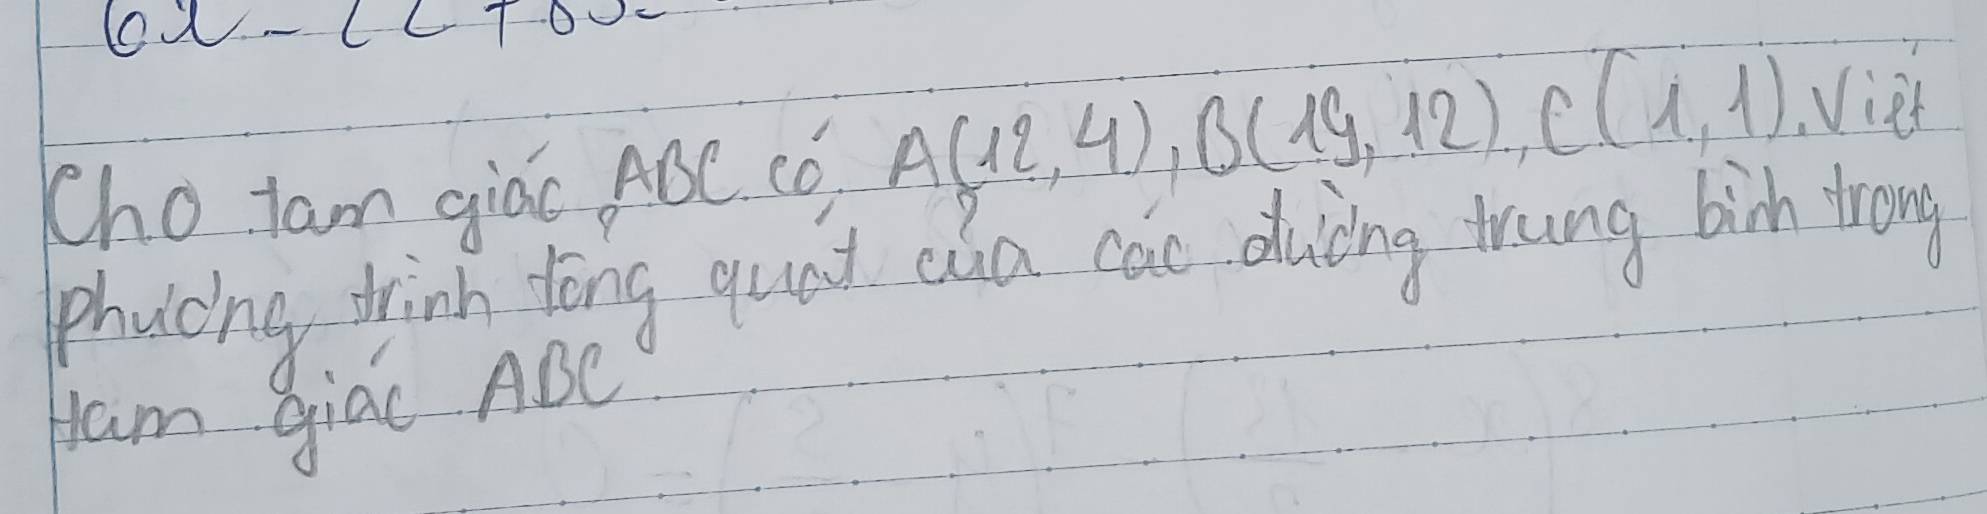 Cho tam giác ABC có A(12,4), B(19,12), C(1,1). Viết
phương trình tổng quát của các đường trung bình trong
tam giác ABC